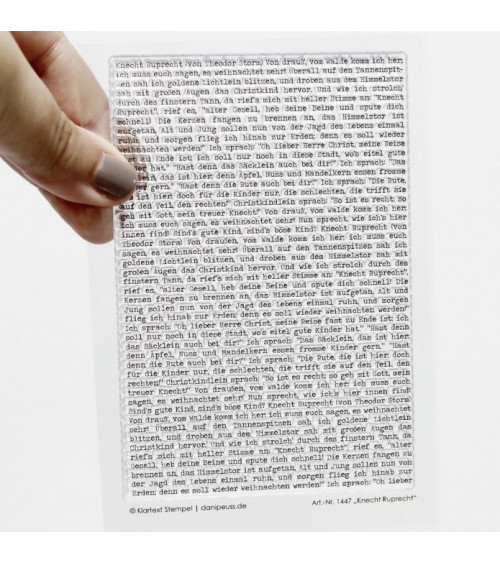 Knecht Ruprecht (von Theodor Storm) Von drauß, vom Walde komm ich her;
ich muss euch sagen, es weihnachtet sehr! Überall auf den Tannenspit-
zen sah ich goldene Lichtlein blitzen, und droben aus dem Himmelstor
sah mit großen Augen das Christkind hervor. Und wie ich strolch'
durch des finstern Tann, da rief's mich mit heller Stimme an: "Knecht
Ruprecht", rief es, "alter Gesell, heb deine Beine und spute dich
schnell! Die Kerzen fangen zu brennen an, das Himmelstor ist
aufgetan, Alt und Jung sollen nun von der Jagd des Lebens einmal
ruhn, und morgen flieg ich hinab zur Erden; denn es soll wieder
weihnachten werden!" Ich sprach: "Oh lieber Herre Christ, meine Reise
zu Ende ist; ich soll nur noch in diese Stadt, wo's eitel gute
hat." "Hast denn das Säcklein auch bei dir?" Ich sprach: "Das
das ist hier; denn Äpfel, Nuss und Mandelkern essen fromme
gern." "Hast denn die Rute auch bei dir?" Ich sprach: "Die Rute,
ist hier; doch für die Kinder nur, die schlechten, die trifft sie
auf den Teil, den rechten!" Christkindlein sprach: "So ist es recht; so
geh mit Gott, mein treuer Knecht!" Von drauß, vom Walde komm ich her;
ich muss euch sagen, es weihnachtet sehr! Nun sprecht, wie ich's hier
innen find! Sind's gute Kind, sind's böse Kind? Knecht Ruprecht (von
Theodor Storm) Von draußen, vom Walde komm ich her; ich muss euch
sagen, es weihnachtet sehr! Überall auf den Tannenspitzen sah ich
goldene Lichtlein blitzen, und droben aus dem Himmelstor sah mit
großen Augen das Christkind hervor. Und wie ich strolch' durch des
finstern Tann, da rief's mich mit heller Stimme an: "Knecht Ruprecht",
rief es, "alter Gesell, heb deine Beine und spute dich schnell! Die
Kerzen fangen zu brennen an, das Himmelstor ist aufgetan, Alt und
Jung sollen nun von der Jagd des Lebens einmal ruhn, und morgen
flieg ich hinab zur Erden; denn es soll wieder weihnachten werden!"
Ich sprach: "Oh, lieber Herre Christ, meine Reise fast zu Ende ist; ich
soll nur noch in diese Stadt, wo's eitel gute Kinder hat." "Hast denn
das Säcklein auch bei dir?" Ich sprach: "Das Säcklein, das ist hier;
denn Äpfel, Nuss und Mandelkern essen fromme Kinder gern." "Hast
denn die Rute auch bei dir?" Ich sprach: "Die Rute, die ist hier; doch
für die Kinder nur, die schlechten, die trifft sie auf den Teil, den
rechten!" Christkindlein sprach: "So ist es recht; so geh mit Gott, mein
treuer Knecht!" Von draußen, vom Walde komm ich her; ich muss euch
sagen, es weihnachtet sehr! Nun sprecht, wie ich's hier innen find!
Sind's gute Kind, sind's böse Kind? Knecht Ruprecht (von Theodor Storm)
Von drauß, vom Walde komm ich her; ich muss euch sagen, es weihnachtet
sehr! Überall auf den Tannenspitzen sah ich goldene Lichtlein
blitzen, und droben aus dem Himmelstor sah mit großen Augen das
Christkind hervor. Und wie ich strolch' durch des finstern Tann, da
rief's mich mit heller Stimme an: "Knecht Ruprecht", rief es, "alter
Gesell, heb deine Beine und spute dich schnell! Die Kerzen fangen zu
brennen an, das Himmelstor ist aufgetan, Alt und Jung sollen nun von
der Jagd des Lebens einmal ruhn, und morgen flieg ich hinab zur
Erden; denn es soll wieder weihnachten werden!" Ich sprach: "Oh lieber
© Klartext Stempel / danipeuss.de
Art.-Nr. 1447 „Knecht Ruprecht"